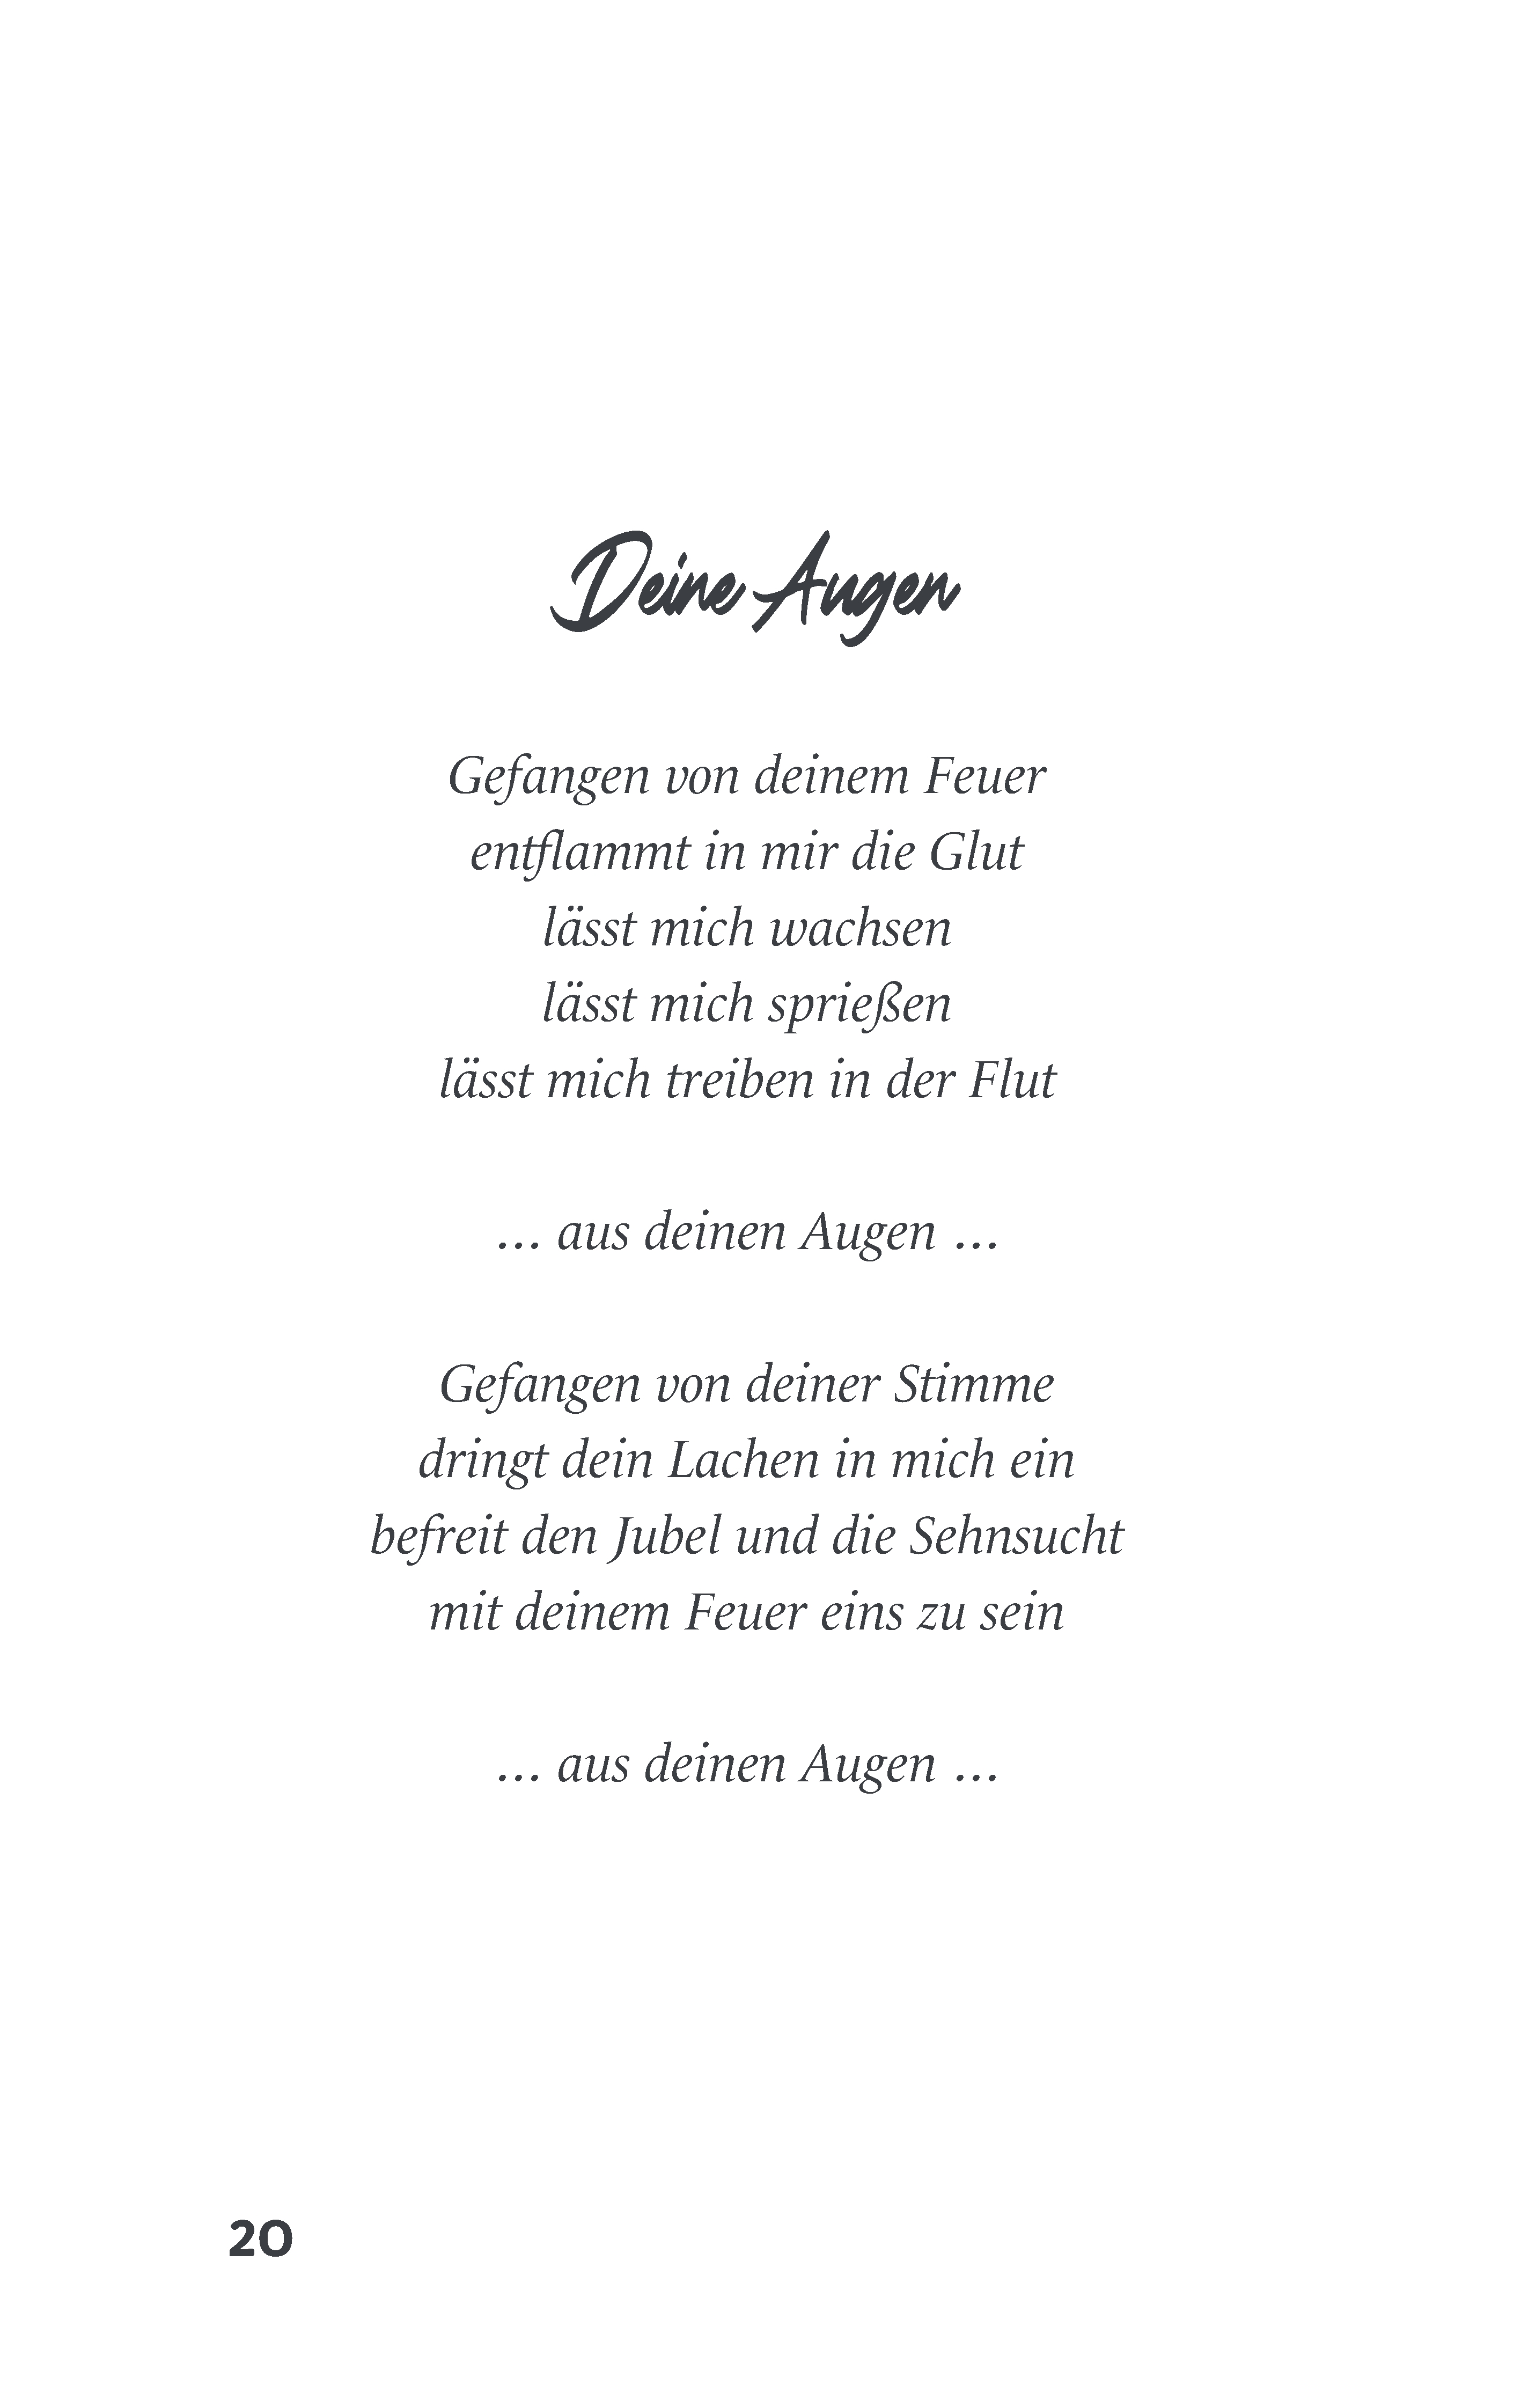 Deine Augen
Gefangen von deinem Feuer
entflammt in mir die Glut
lässt mich wachsen
lässt mich sprießen
lässt mich treiben in der Flut
… aus deinen Augen …
Gefangen von deiner Stimme
dringt dein Lachen in mich ein
befreit den Jubel und die Sehnsucht
mit deinem Feuer eins zu sein
… aus deinen Augen …
20